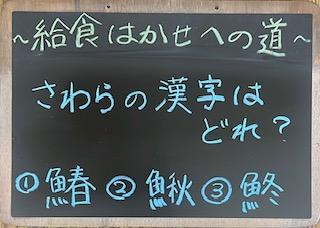 ～給食はかせへの道～
さわらの漢字は
どれ？
①鰆 ②鰍 ③鮗